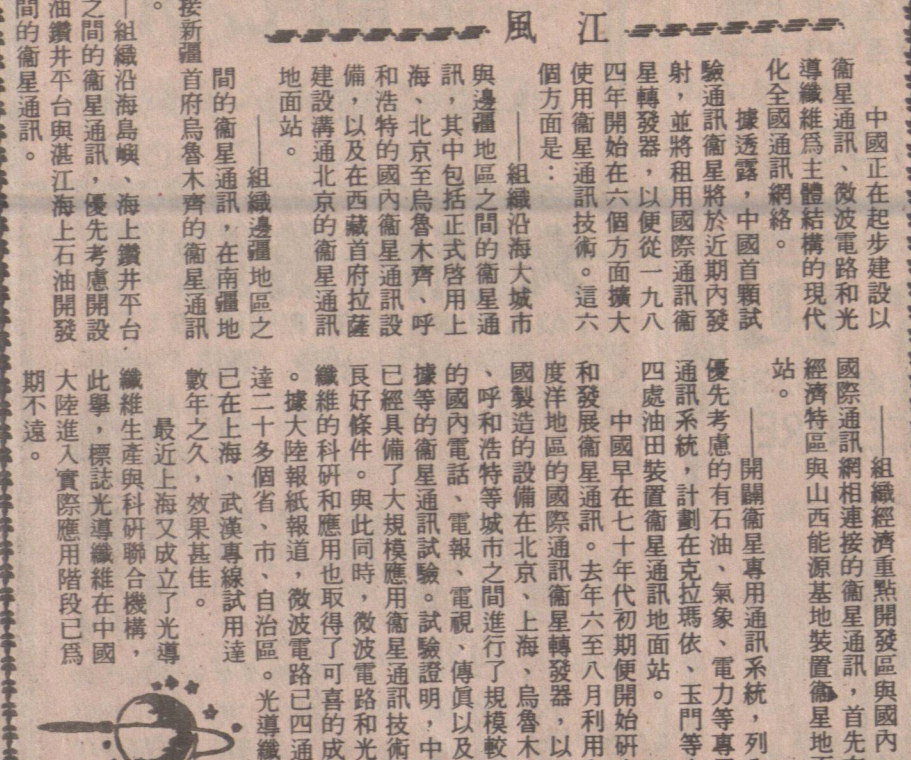 江　風
中國正在起步建設以
衞星通訊、微波電路和光
導纖維爲主體結構的現代
化全國通訊網絡。
據透露，中國首顆試
驗通訊衞星將於近期內發
射，並將租用國際通訊衞
星轉發器，以便從一九八
四年開始在六個方面擴大
使用衞星通訊技術。這六
個方面是：
——組織沿海大城市
與邊疆地區之間的衞星通
訊，其中包括正式啓用上
海、北京至烏魯木齊、呼
和浩特的國內衞星通訊設
備，以及在西藏首府拉薩
建設溝通北京的衞星通訊
地面站。
——組織邊疆地區之
間的衞星通訊，在南疆地
接新疆首府烏魯木齊的衞星通訊
。
—組織沿海島嶼、海上鑽井平台
之間的衞星通訊，優先考慮開設
油鑽井平台與湛江海上石油開發
間的衞星通訊。
——組織經濟重點開發區與國內
國際通訊網相連接的衞星通訊，首先
經濟特區與山西能源基地裝置衞星地
站。
——開闢衞星專用通訊系統，列
優先考慮的有石油、氣象、電力等專
通訊系統，計劃在克拉瑪依、玉門等
四處油田裝置衞星通訊地面站。
中國早在七十年代初期便開始研
和發展衞星通訊。去年六至八月利用
度洋地區的國際通訊衞星轉發器，以
國製造的設備在北京、上海、烏魯木
、呼和浩特等城市之間進行了規模較
的國內電話、電報、電視、傳眞以及
據等的衞星通訊試驗。試驗證明，中
已經具備了大規模應用衞星通訊技術
良好條件。與此同時，微波電路和光
纖維的科研和應用也取得了可喜的成
。據大陸報紙報道，微波電路已四通
達二十多個省、市、自治區。光導纖
已在上海、武漢專線試用達
數年之久，效果甚佳。
最近上海又成立了光導
纖維生產與科研聯合機構，
此舉，標誌光導纖維在中國
大陸進入實際應用階段已爲
期不遠。